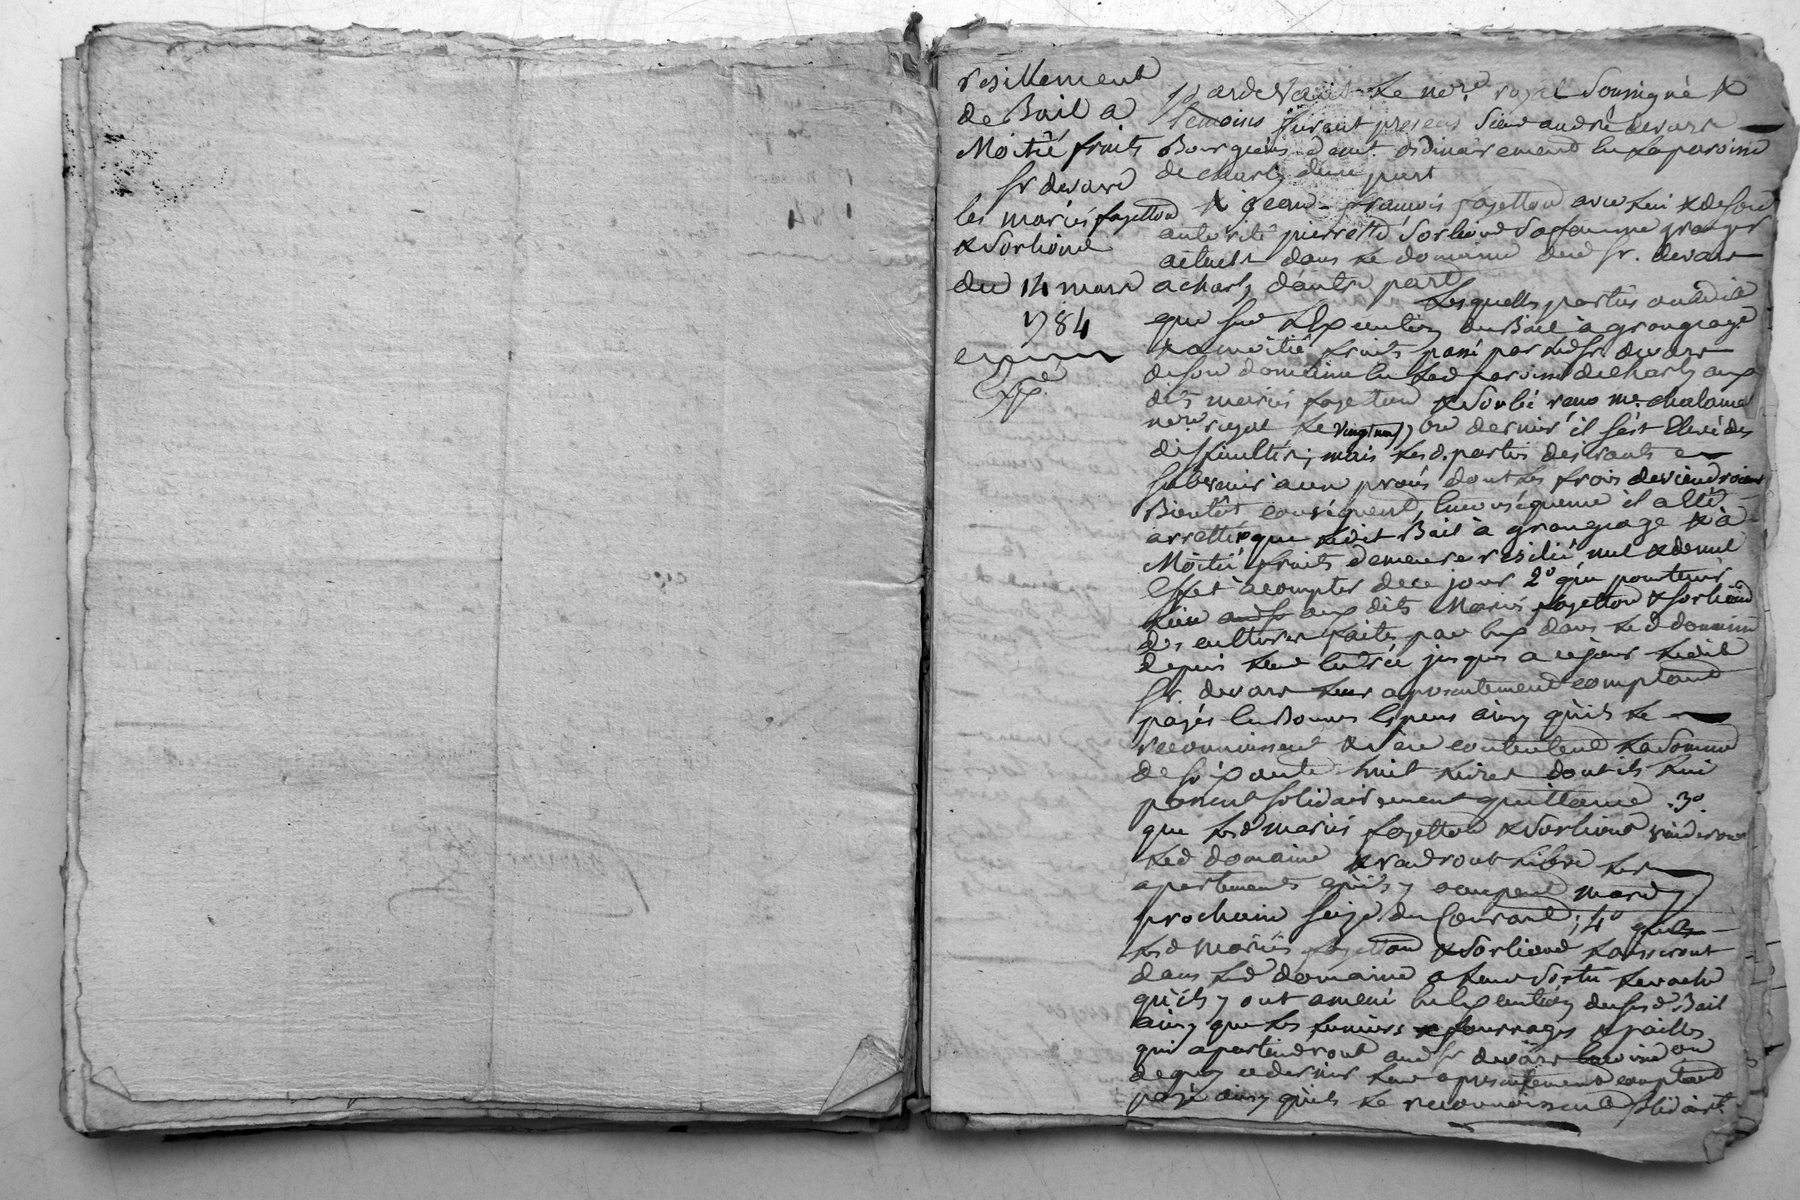 resiliement
de Bail a
Moitié fruits
sr devare
les mariés fayetton
& Sorlione
du 14 mars
1784
Pardevant Le nore royal Soussigné &
témoins furent presens Sieur andré devare
Bourgeois demt ordinairement en La paroisse
de charly d'une part
& jean françois fayetton avec Lui & de son
autorité pierrette Sorliond Sa femme granger
actuels dans Le domaine dud sr. devare
a charly d'autre part
Lesquelles parties ont dit
que sur L'Execution du Bail à grangeage
& a moitié fruits passé par Led sr devare
de son domaine en Lad paroisse de charly aux
dits mariés fayetton & Sorli me. chalamel
nore royal Le vingt neuf dernier il s'est Elevé des
difficultés; mais Lesd. parties desirants
subvenir a un procès dont Les frais deviendroient
Bientôt conséquent, En conséquence il a Eté
arretté que Ledit Bail à grangeage & à
Moitié fruits demeure resilié nul & de nul
Effet à compter de ce jour 2o que pour tenir
Lieu aux dits Mariés fayetton & Sorliond
des cultures faites par Eux dans Led domaine
depuis Leur Entrée jusques a ce jour Ledit
Sr. devare Leur a presentement comptant
payés En Bonnes Especes ainsy qu'ils Le
reconnoissent & s'en contentent La Somme
de soixante huit Livres dont ils Lui
passent solidairement quittance .3o.
que Lesd mariés fayetton & Sorliond vuideront
Led domaine & rendront Libre Les
apartements qu'ils y occupent mardy
prochain seize du Courant; 4o que
Lesd Mariés fayetton & Sorliond Laisseront
dans Led domaine a Leur Sortie La vache
qu'ils y ont amené En Execution dusd Bail
ainsy que Les fumiers & fourrages & pailles
qui apartiendront aud sr devare
de quoy ce dernier Leur a presentement comptant
payé ainsy qu'ils Le reconnoissent solidairt